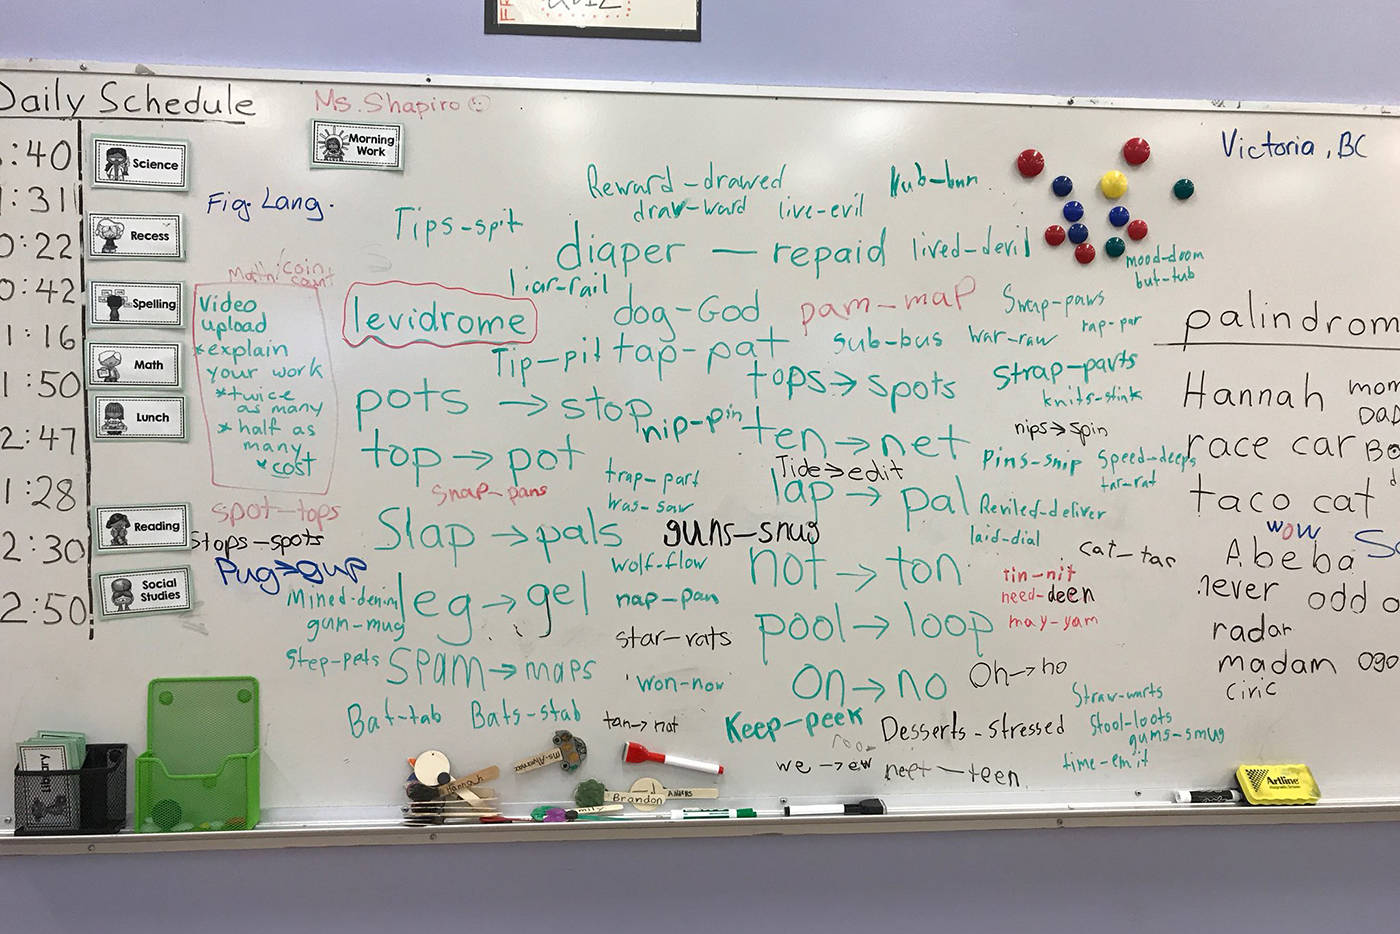 Daily Schedule
Ms. Shapiro
Morning Work
:40 Science
:31
0:22 Recess
0:42 Spelling
1:16
1:50 Math
2:47 Lunch
1:28
2:30 Reading
2:50 Social Studies
Fig. Lang.
Math: coin count
Video
upload
*explain
your work
*twice
as many
*half as
many
*cost
levidrome
Tips-spit
Reward-drawed
draw-ward
live-evil
Nub-bun
diaper — repaid
lived-devil
liar-rail
dog-God
pam-map
Swap-paws
mood-doom
but-tub
rap-par
Tip-pit
tap-pat
sub-bus
war-raw
tops→spots
strap-parts
knits-stink
pots → stop
nip-pin
ten→net
nips→spin
top→pot
Tide→edit
pins-snip
Speed-deeps
tar-rat
trap-part
snap-pans
was-saw
lap→pal
Reviled-deliver
spot-tops
stops-spots
Slap→pals
guns-snug
laid-dial
cat-tac
Pug→gup
wolf-flow
not→ton
tin-nit
need-deen
may-yam
Mined-denim
gum-mug
leg→gel
nap-pan
star-rats
pool→loop
step-pets
spam→maps
won-now
on→no
Oh→ho
Straw-warts
Bat-tab
Bats-stab
tan→nat
Keep-peek
Desserts-stressed
Stool-loots
gums-smug
we→ew
neet—teen
time-emit
Victoria, BC
palindrom
Hannah
mom
DAD
race car
taco cat
wow
Abeba
never odd o
radar
madam
civic
Library
Hannah
Ms. Alvarez
Brandon
Artline